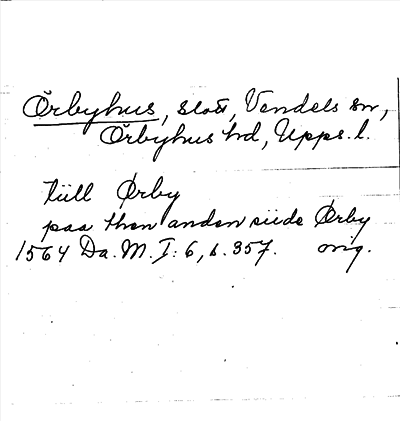 Örbyhus, slott, Vendels sn,
Örbyhus hd, Upps. l.
tiill Ørby
paa then anden siide Ørby
1564 Da. M. I: 6, s. 357. orig.